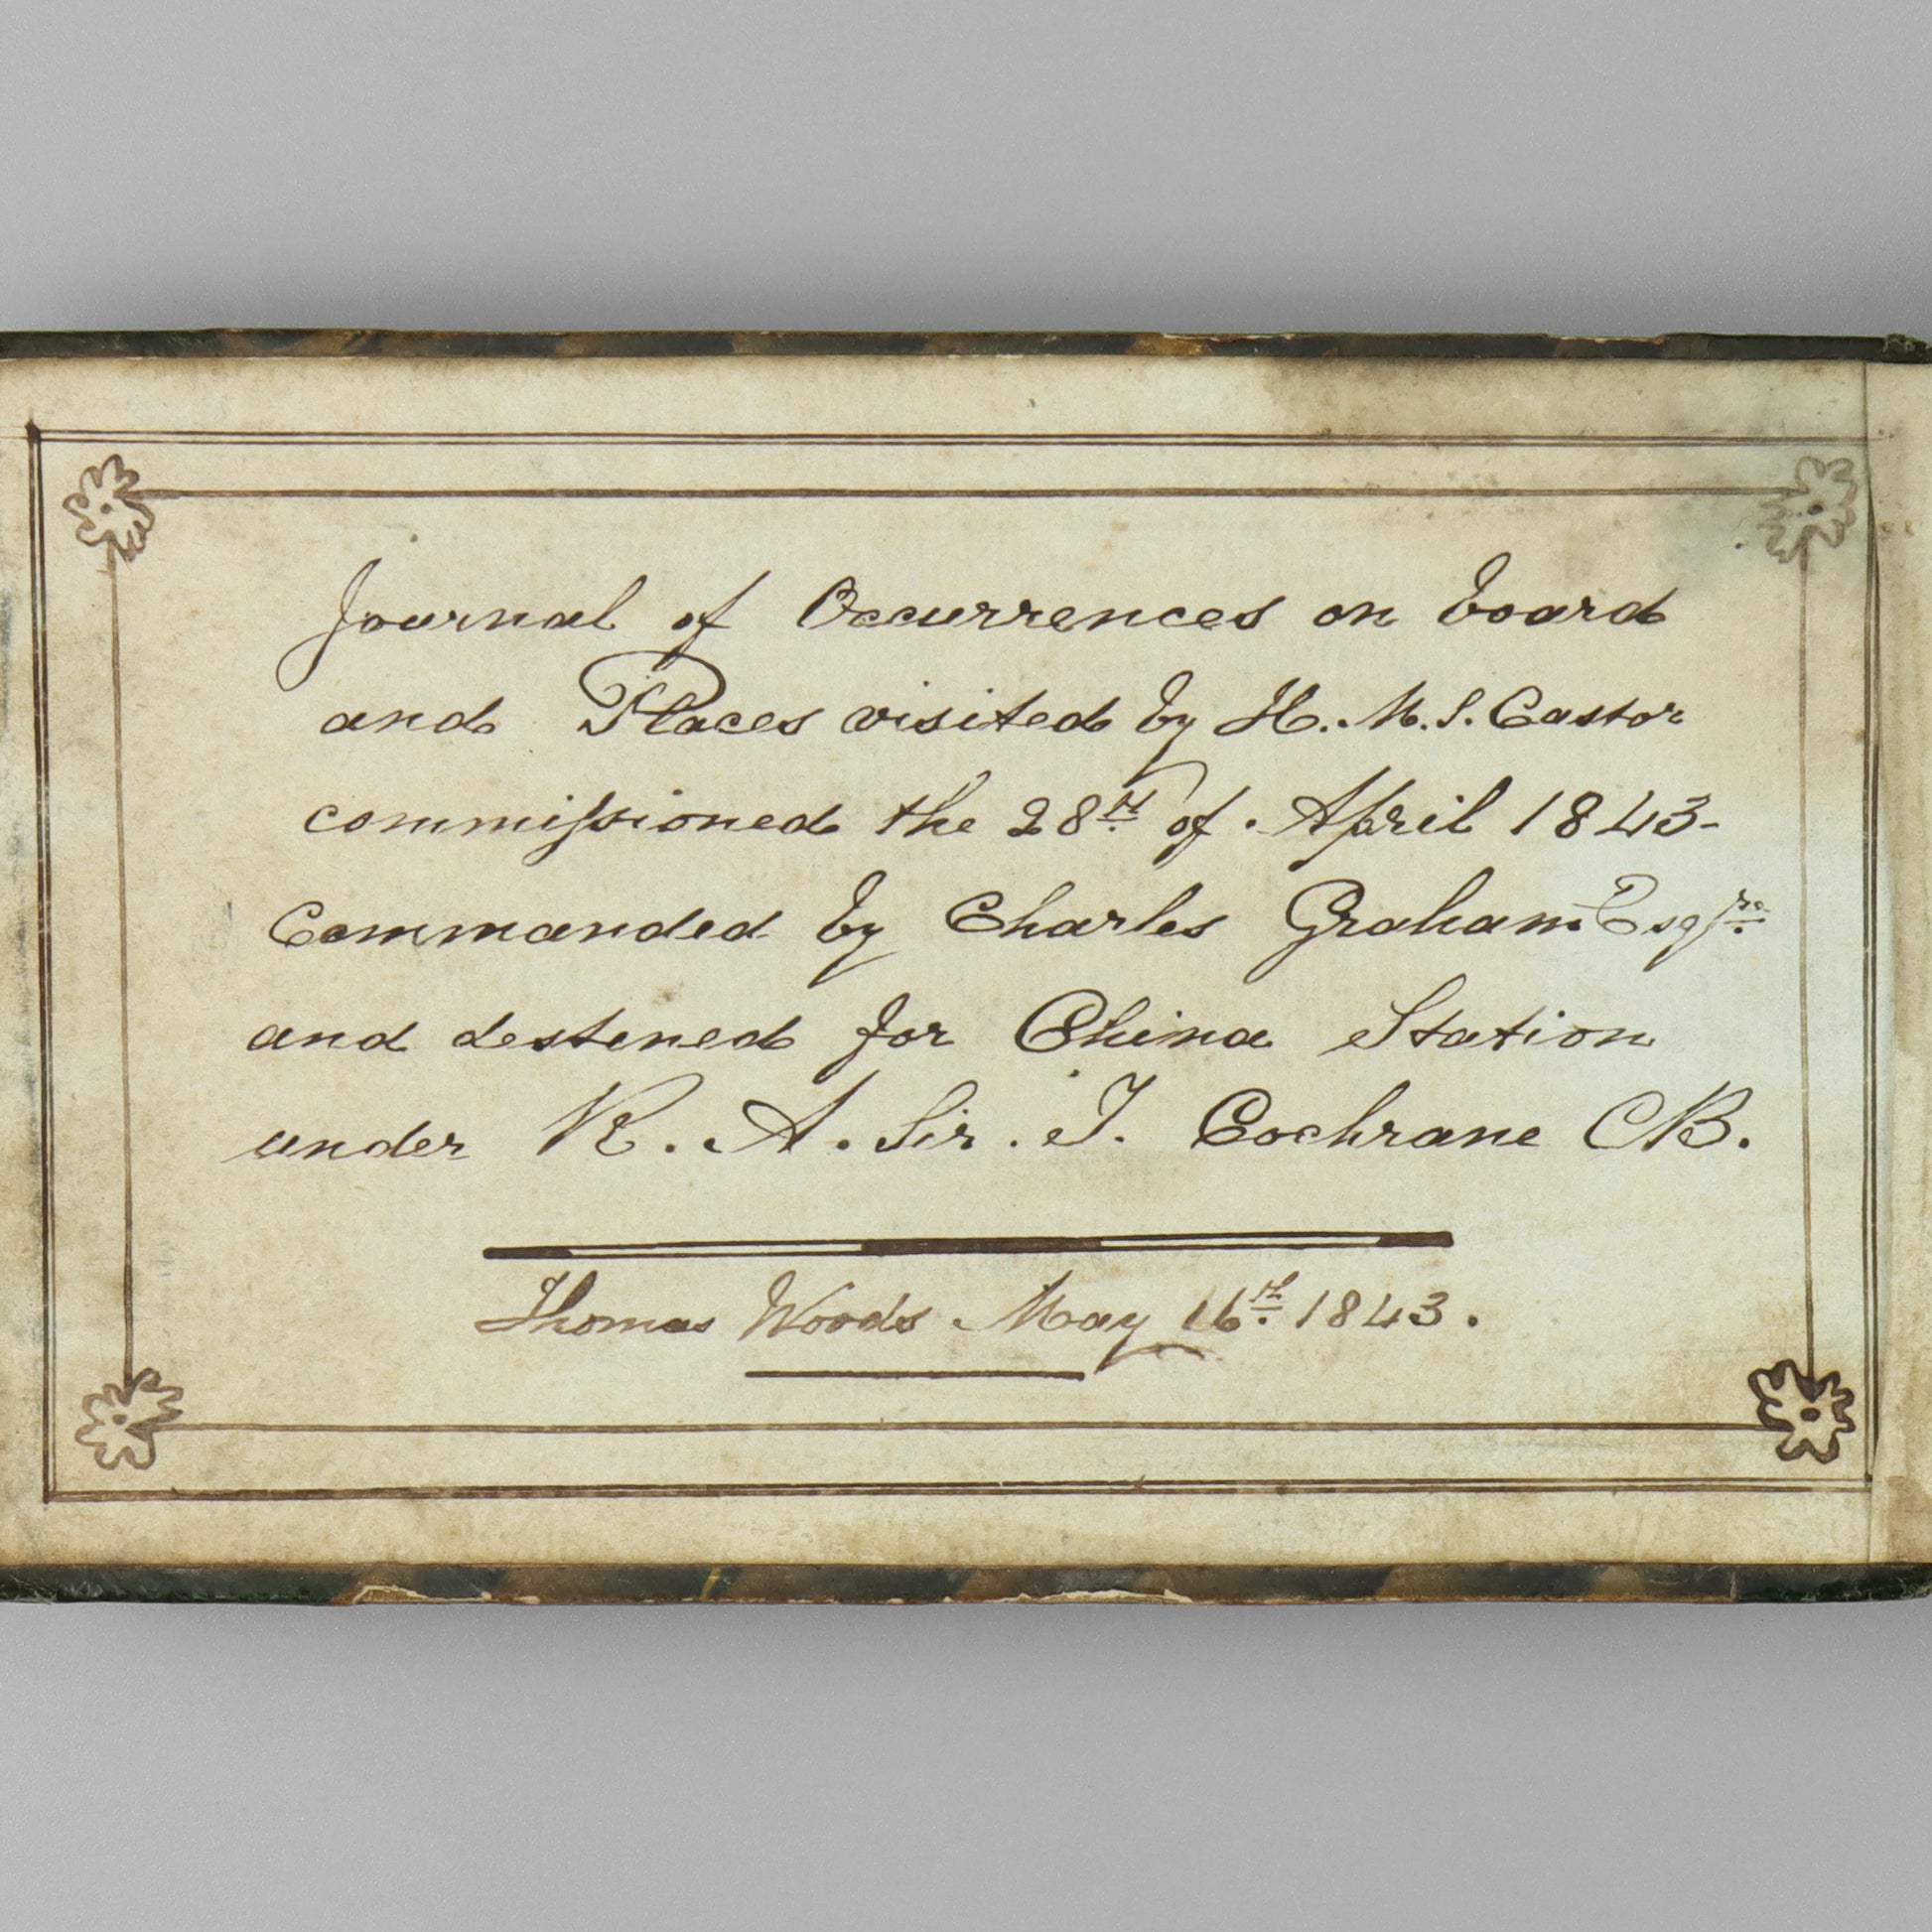 Journal of Occurrences on board
and Places visited by H. M. S. Castor
commissioned the 28th of April 1843-
Commanded by Charles Graham Esqre
and destened for China Station
under R. A. Sir. T. Cochrane CB.
Thomas Woods May 16th 1843.